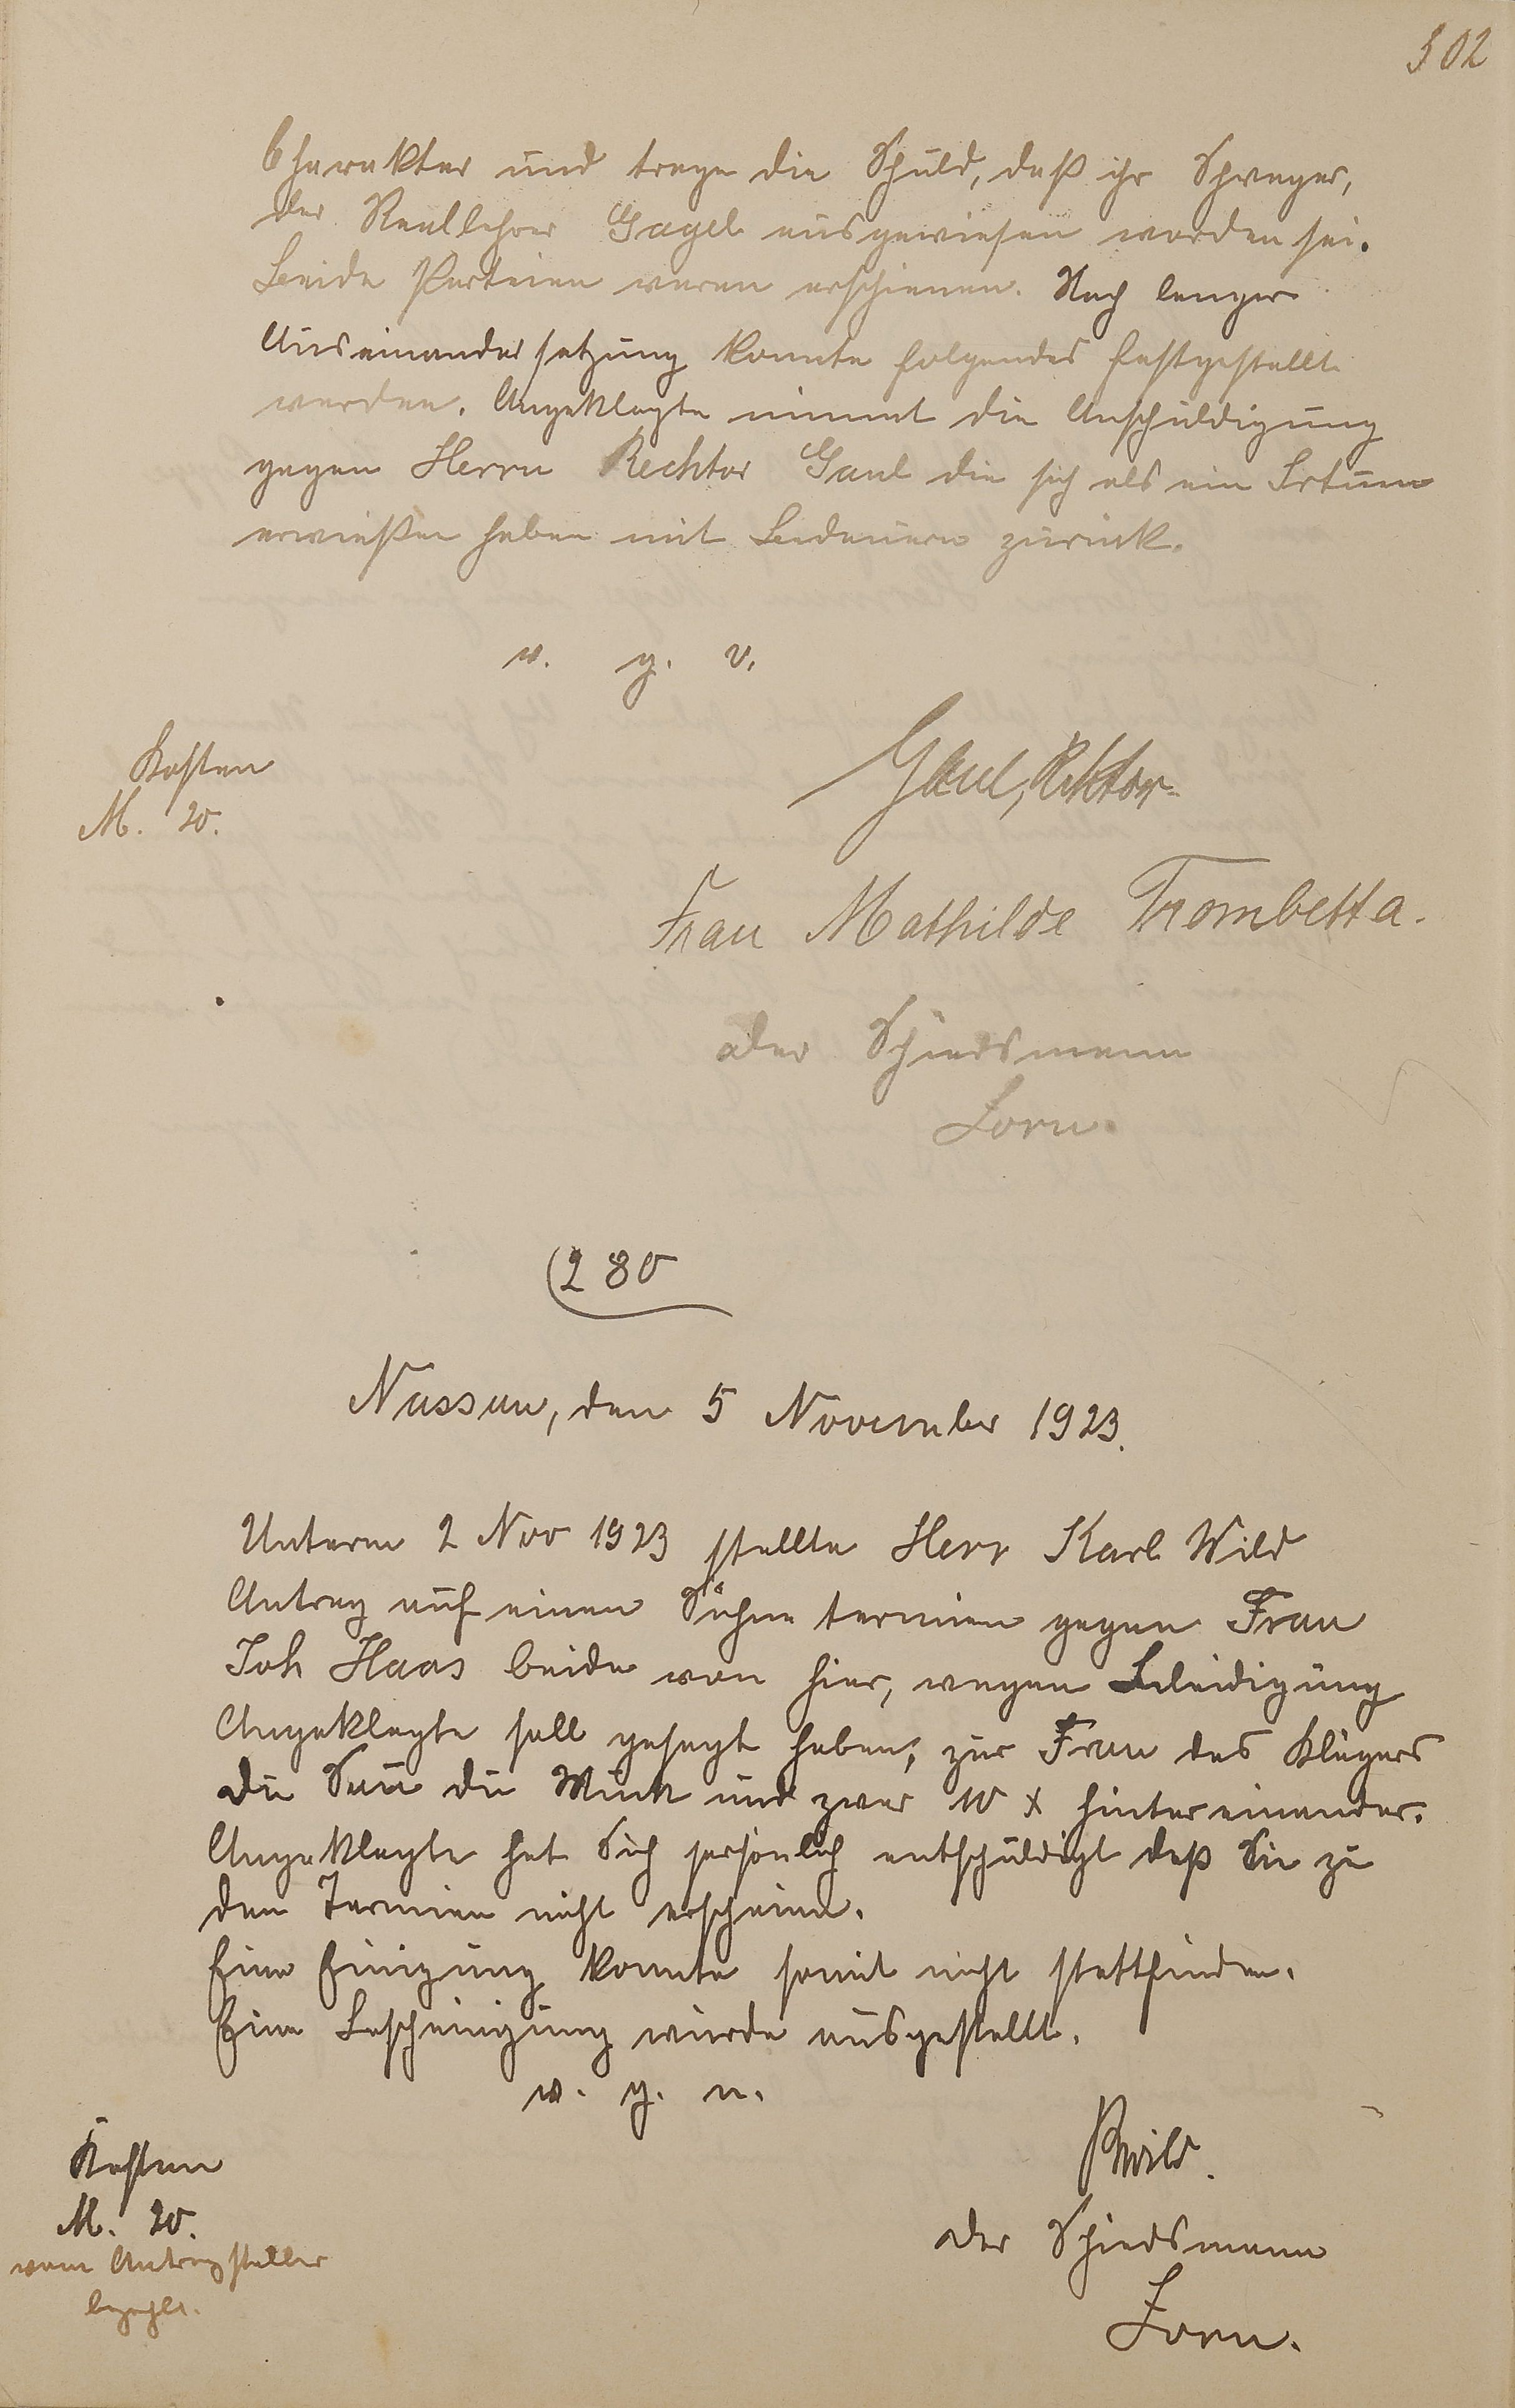 302
Charakter und trage die Schuld, daß ihr Schwager,
der Reallehrer Gagel ausgewiesen worden sei.
Beide Parteien waren erschienen. Nach langer
Auseinandersetzung konnte folgendes festgestellt
werden. Angeklagte nimmt die Anschuldigung
gegen Herrn Recktor Gaul die sich als ein Irtum
erwießen haben mit Bedauern zurück.
v. g. v.
Kosten
M. 20.
Gaul, Rektor
Frau Mathilde Trombetta.
der Schiedsmann
Zorn.
280
Nassau, den 5 November 1923.
Unterm 2 Nov 1923 stellte Herr Karl Wild
Antrag auf einen Sühne termien gegen Frau
Joh Haas beide von hier, wegen Beleidigung
Angeklagte soll gesagt haben, zur Frau des Klägers
du Sau du und zwar 10 x hintereinander.
Angeklagte hat Sich persönlich entschuldigt daß Sie zu
dem Termien nicht erscheine.
Eine Einigung konnte somit nicht stattfinden.
Eine Bescheinigung wurde ausgestellt.
v. g. u.
Kosten
M. 20.
vom Antragsteller
bezahlt.
Wild.
der Schiedsmann
Zorn.